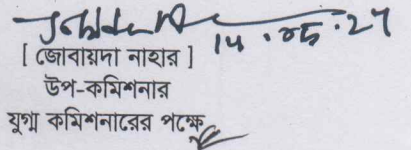 [ জোবায়দা নাহার ]
উপ-কমিশনার
যুগ্ম কমিশনারের পক্ষে